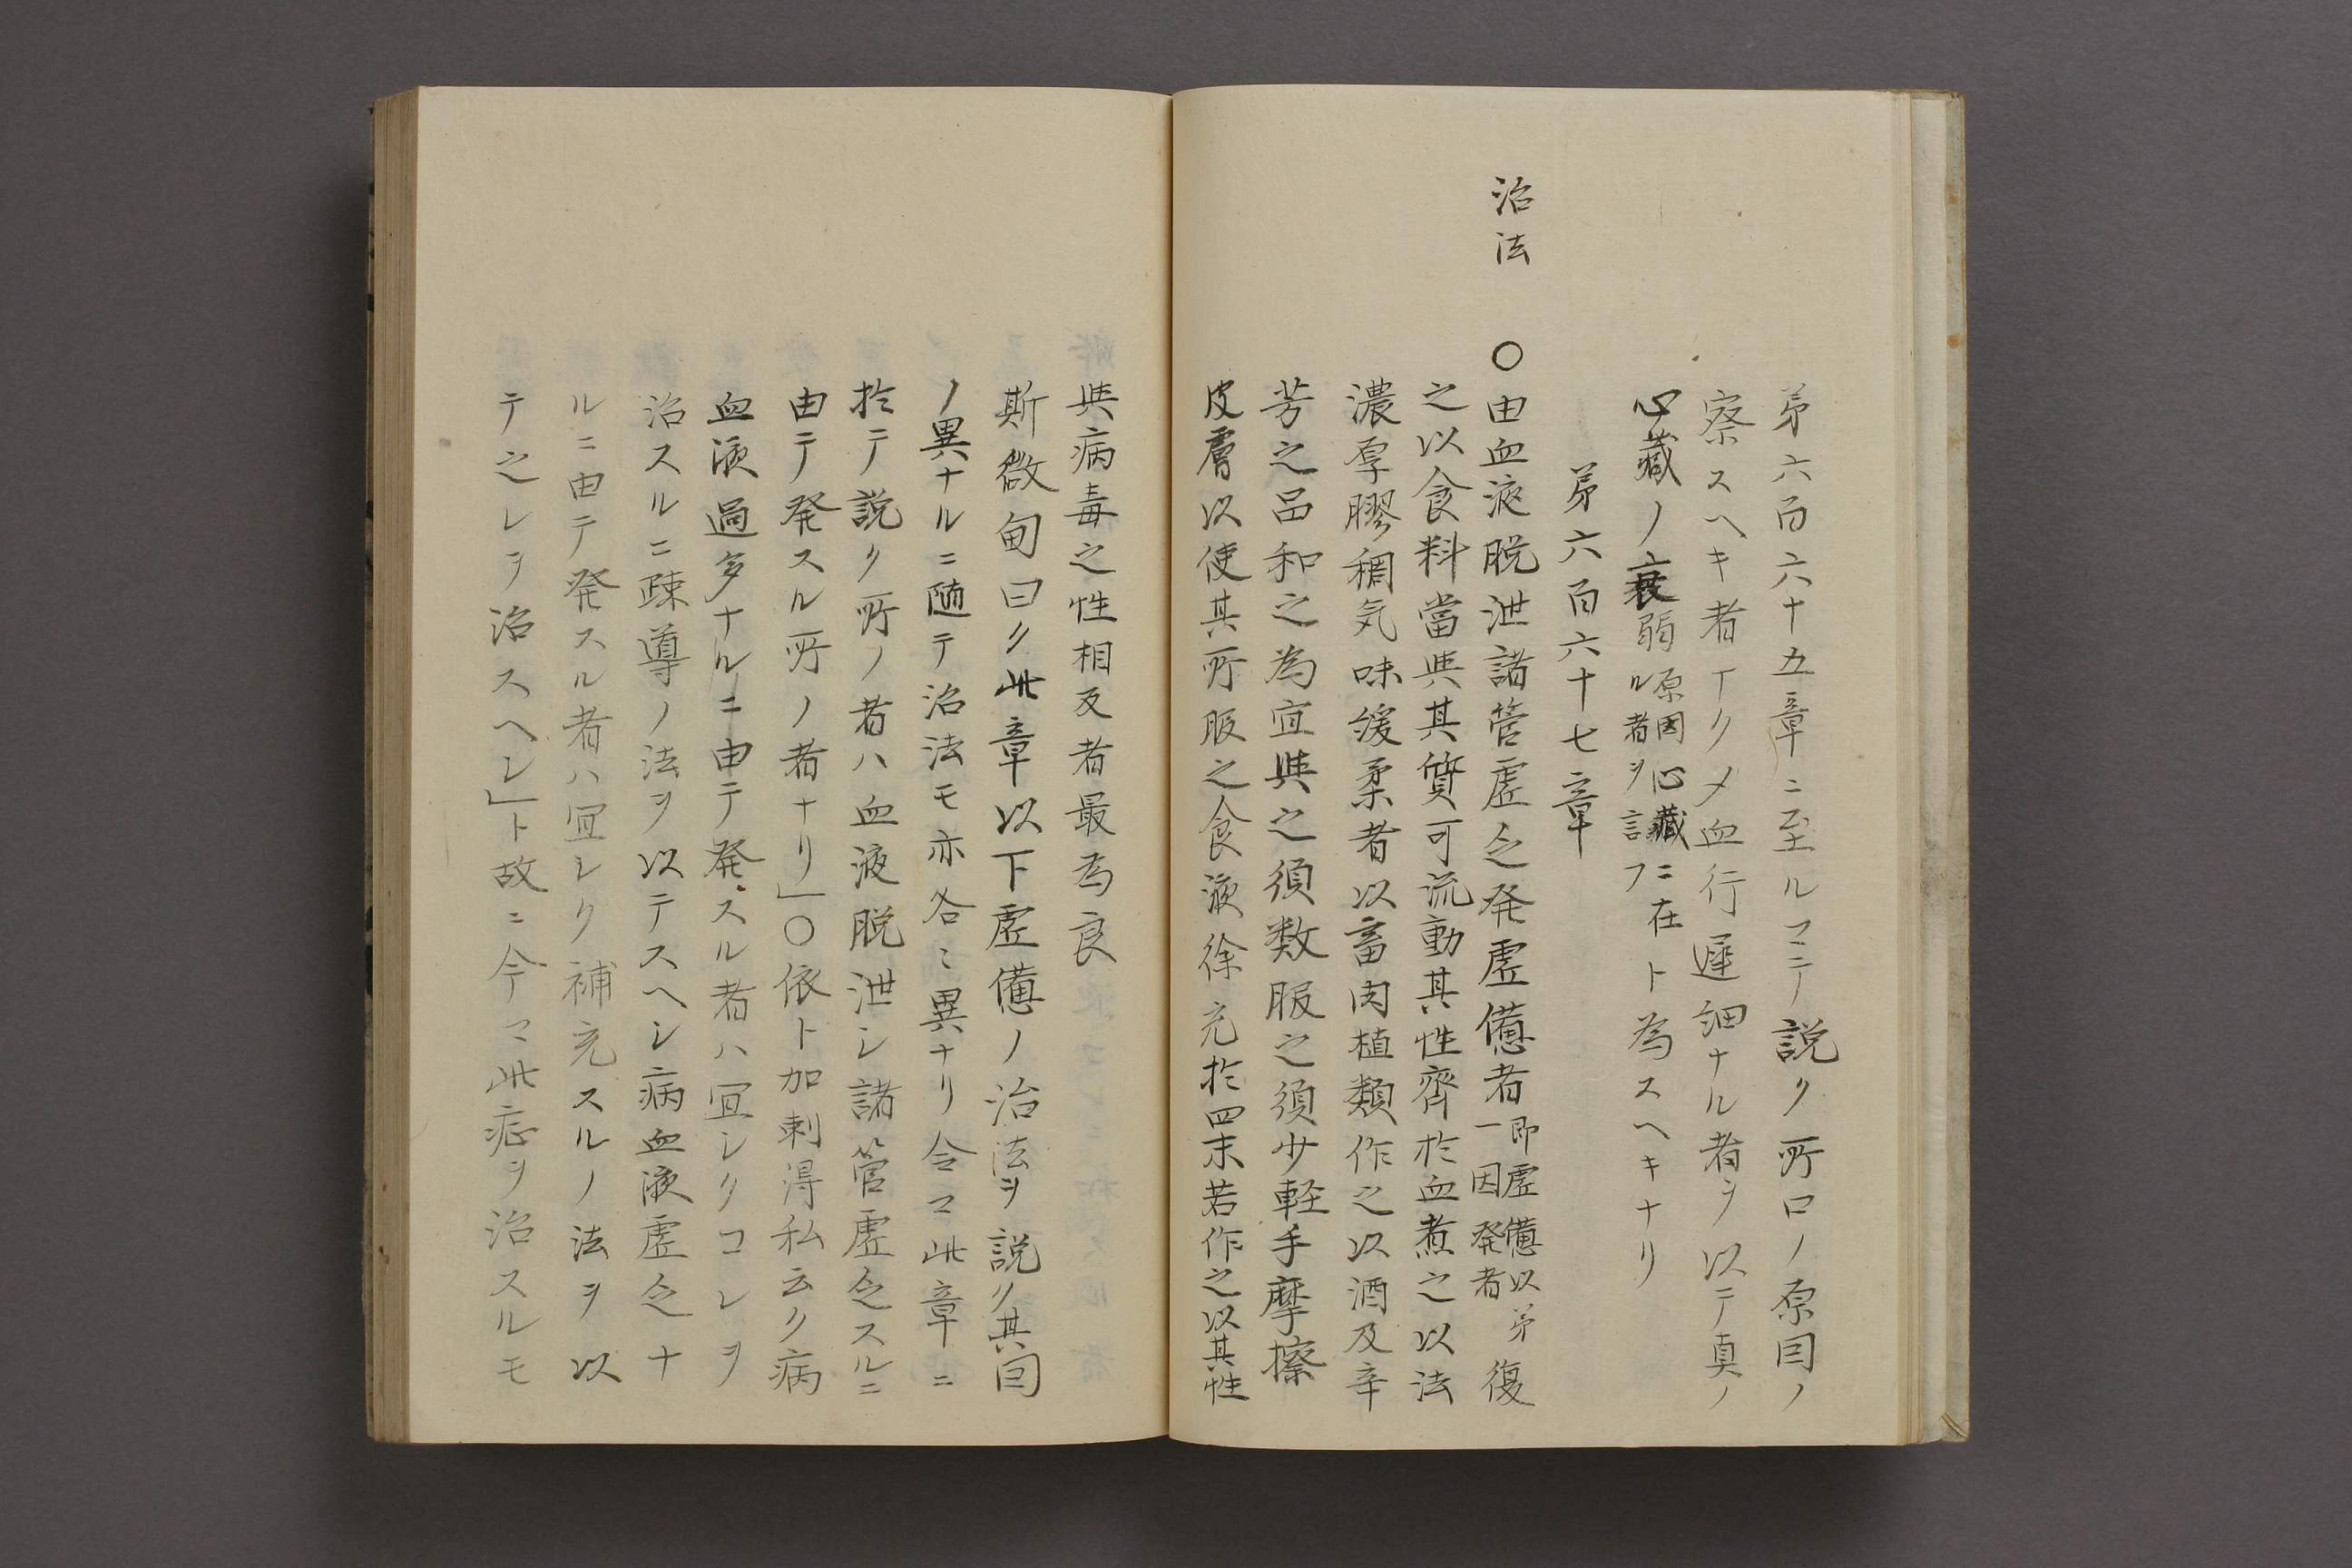 第六百六十五章ニ至ルマテ説ク所ロノ原因ノ
察スヘキ者无クメ血行遲細ナル者ヲ以テ真ノ
心藏ノ衰弱原因心藏ニ在ル者ヲ謂フト為スヘキナリ
第六百六十七章
治法
○由血液脱泄諸管虛乏発虛憊者即虛憊以第一因発者復
之以食料當與其質可流動其性齊於血煮之以法
濃厚膠稠気味緩柔者以畜肉植類作之以酒及辛
芳之品和之為宜與之須数服之須少軽手摩擦
皮膚以使其所服之食液徐充於四末若作之以其性
與病毒之性相反者最為良
斯微甸曰ク此章以下虛憊ノ治法ヲ説ク其因
ノ異ナルニ随テ治法モ亦各〻異ナリ今マ此章ニ
於テ説ク所ノ者ハ血液脱泄シ諸管虛乏スルニ
由テ発スル所ノ者ナリ」○依ト加剌得私云ク病
血液過多ナルニ由テ発スル者ハ宜シクコレヲ
治スルニ疎導ノ法ヲ以テスヘシ病血液虛乏ナ
ルニ由テ発スル者ハ宜シク補充スルノ法ヲ以
テ之レヲ治スヘシ」ト故ニ今マ此症ヲ治スルモ